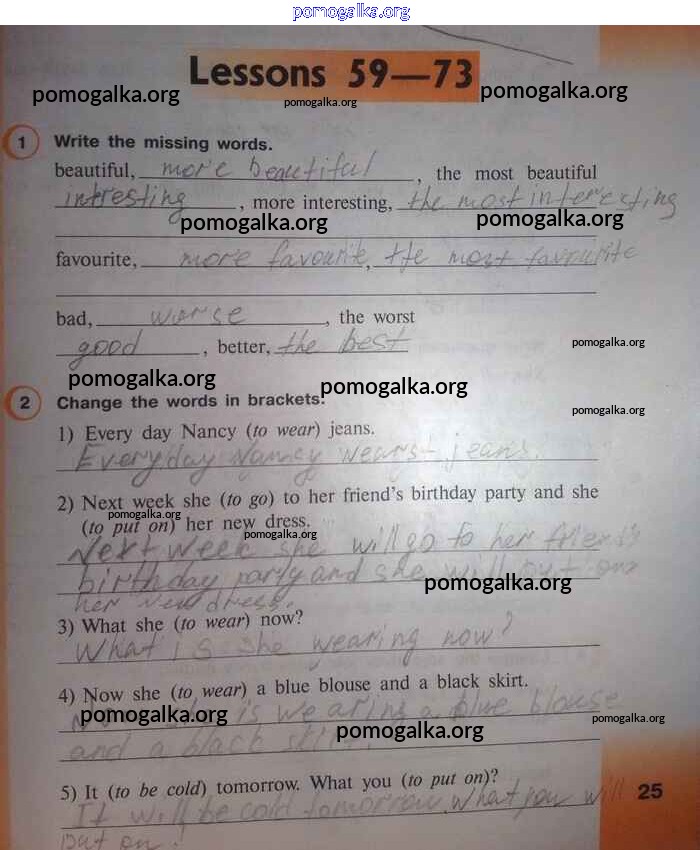 pomogalka.org
Lessons 59—73
pomogalka.org pomogalka.org pomogalka.org
1 Write the missing words.
beautiful, more beautiful, the most beautiful
intresting, more interesting, the most interesting
pomogalka.org pomogalka.org
favourite, more favourite, the most favourite
bad, worse, the worst
good, better, the best
pomogalka.org
pomogalka.org pomogalka.org
2 Change the words in brackets.
pomogalka.org
1) Every day Nancy (to wear) jeans.
Every day Nancy wears jeans.
2) Next week she (to go) to her friend's birthday party and she
pomogalka.org
(to put on) her new dress.
pomogalka.org
Next week she will go to her friend's
birthday party and she will put on
pomogalka.org
her new dress.
3) What she (to wear) now?
What is she wearing now?
4) Now she (to wear) a blue blouse and a black skirt.
Now she is wearing a blue blouse
pomogalka.org pomogalka.org
pomogalka.org
and a black skirt.
5) It (to be cold) tomorrow. What you (to put on)?
25
It will be cold tomorrow. What you will
put on?